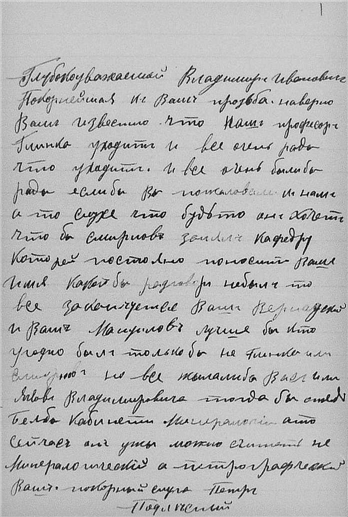 Глубокоуважаемой Владимиръ Ивановичъ
Покорнейшая къ Вамъ прозьба. наверно
Вамъ извесно что Нашъ професоръ
Глинка уходитъ и все очень рады
что уходитъ. и все очень былибы
рады еслибы Вы пожаловали к намъ
а то слухе что будьто онъ хочетъ
что бы смирновъ занялъ Кафедру
Которей постояно поноситъ Ваше
имя Какойбы разговоръ небылъ то
все закончуется Вашъ Вернадской
и Вашъ лучше бы кто
угодно былъ толькобы не Глинке или
но все жылалибы Васъ или
Владимировича тогда бы
былбы Кабинетъ Минералогии ато
сейчасъ ужы можно считать не
Минералогический а петрографический
Вашъ покорный слуга Петръ